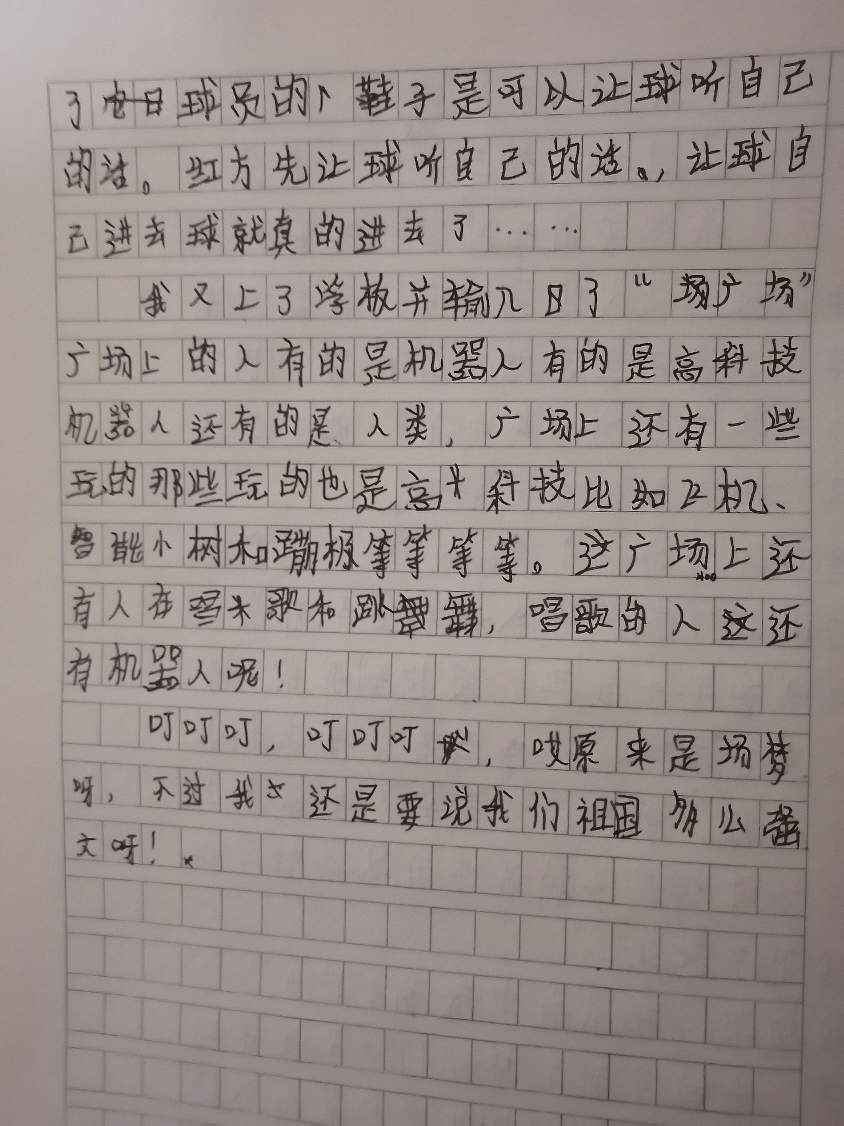 了球员的鞋子是可以让球听自己
的话。红方先让球听自己的话。，让球自
己进去球就真的进去了……
我又上了滑板并输入了“场广场”
广场上的人有的是机器人有的是高科技
机器人还有的是人类，广场上还有一些
玩的那些玩的也是高科技比如飞机、
智能小树和蹦极等等等等。这广场上还
有人在唱歌和跳舞，唱歌的人这还
有机器人呢！
叮叮叮，叮叮叮，哎原来是场梦
呀，不过我还是要说我们祖国多么强
大呀！